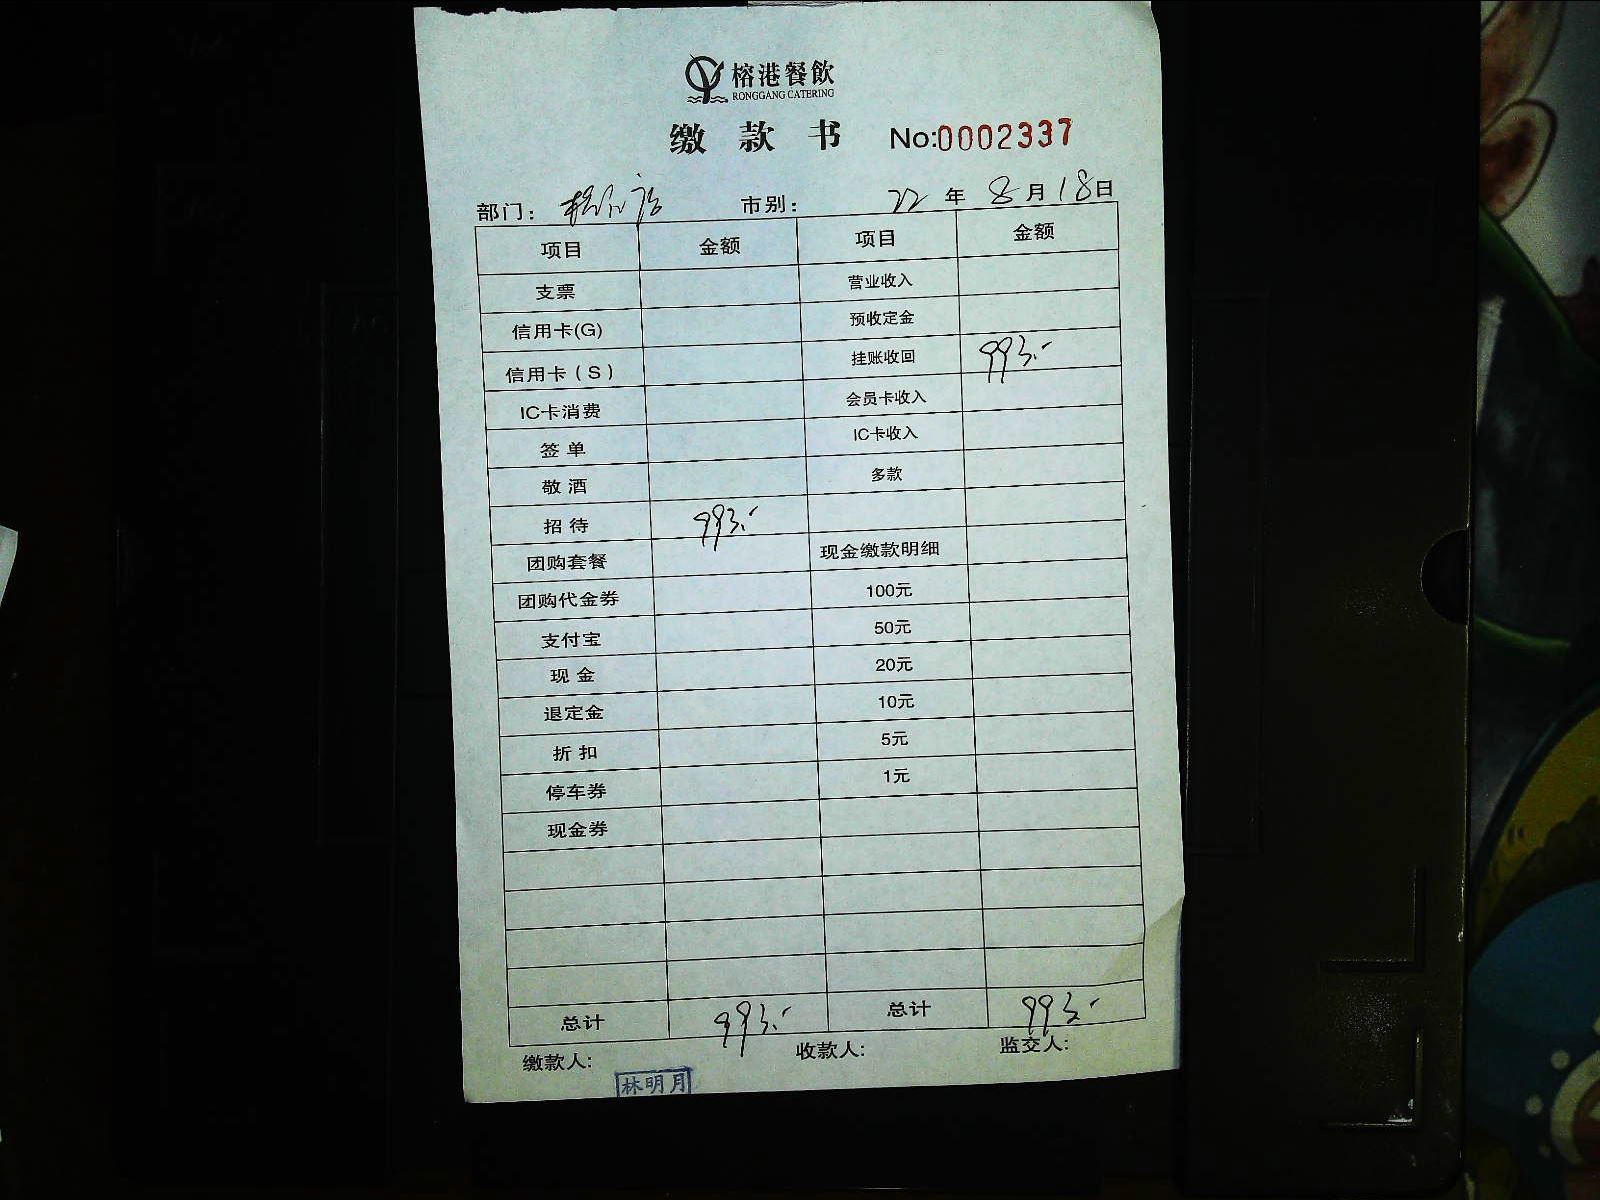 榕港餐飲
RONGGANG CATERING
缴款书 No:0002337
部门: 市别: 22年8月18日
项目 金额 项目 金额
支票 营业收入
信用卡(G) 预收定金
信用卡(S) 挂账收回 993.-
IC卡消费 会员卡收入
签单 IC卡收入
敬酒 多款
招待 993.-
团购套餐 现金缴款明细
团购代金券 100元
支付宝 50元
现金 20元
退定金 10元
折扣 5元
停车券 1元
现金券
总计 993.- 总计 993.-
缴款人: 收款人: 监交人:
林明月